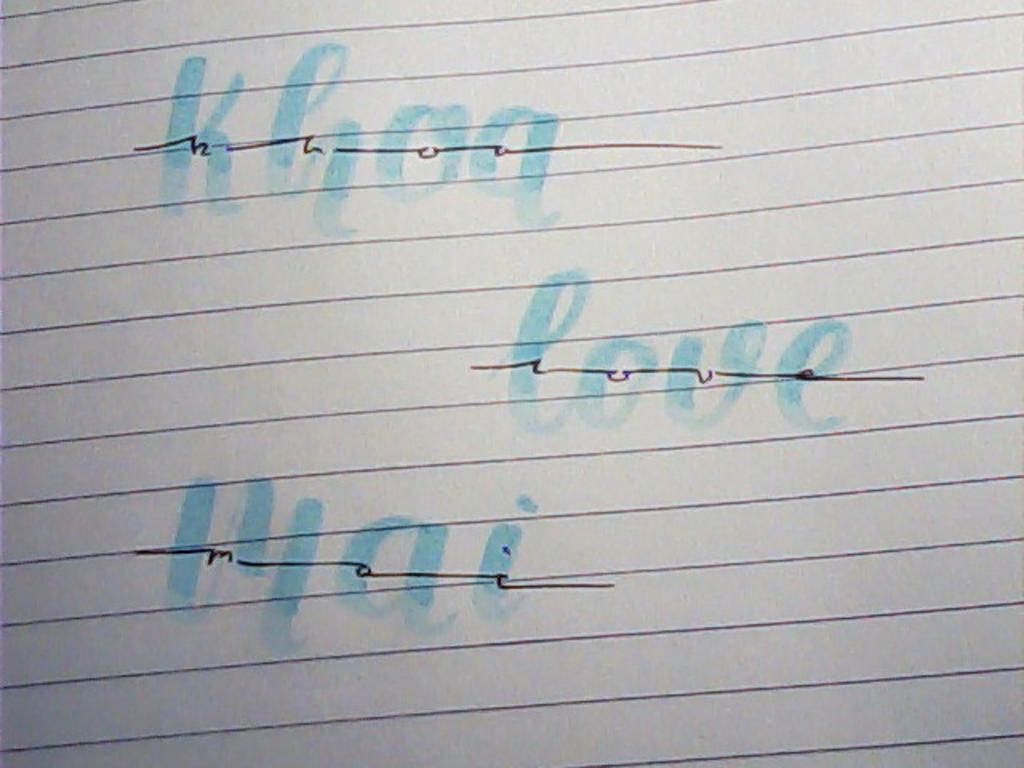 Khoa
k h o a
love
l o v e
Mai
m a i